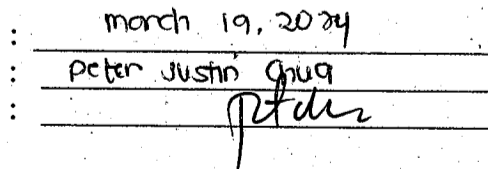 : march 19, 2024
: Peter Justin Chua
: